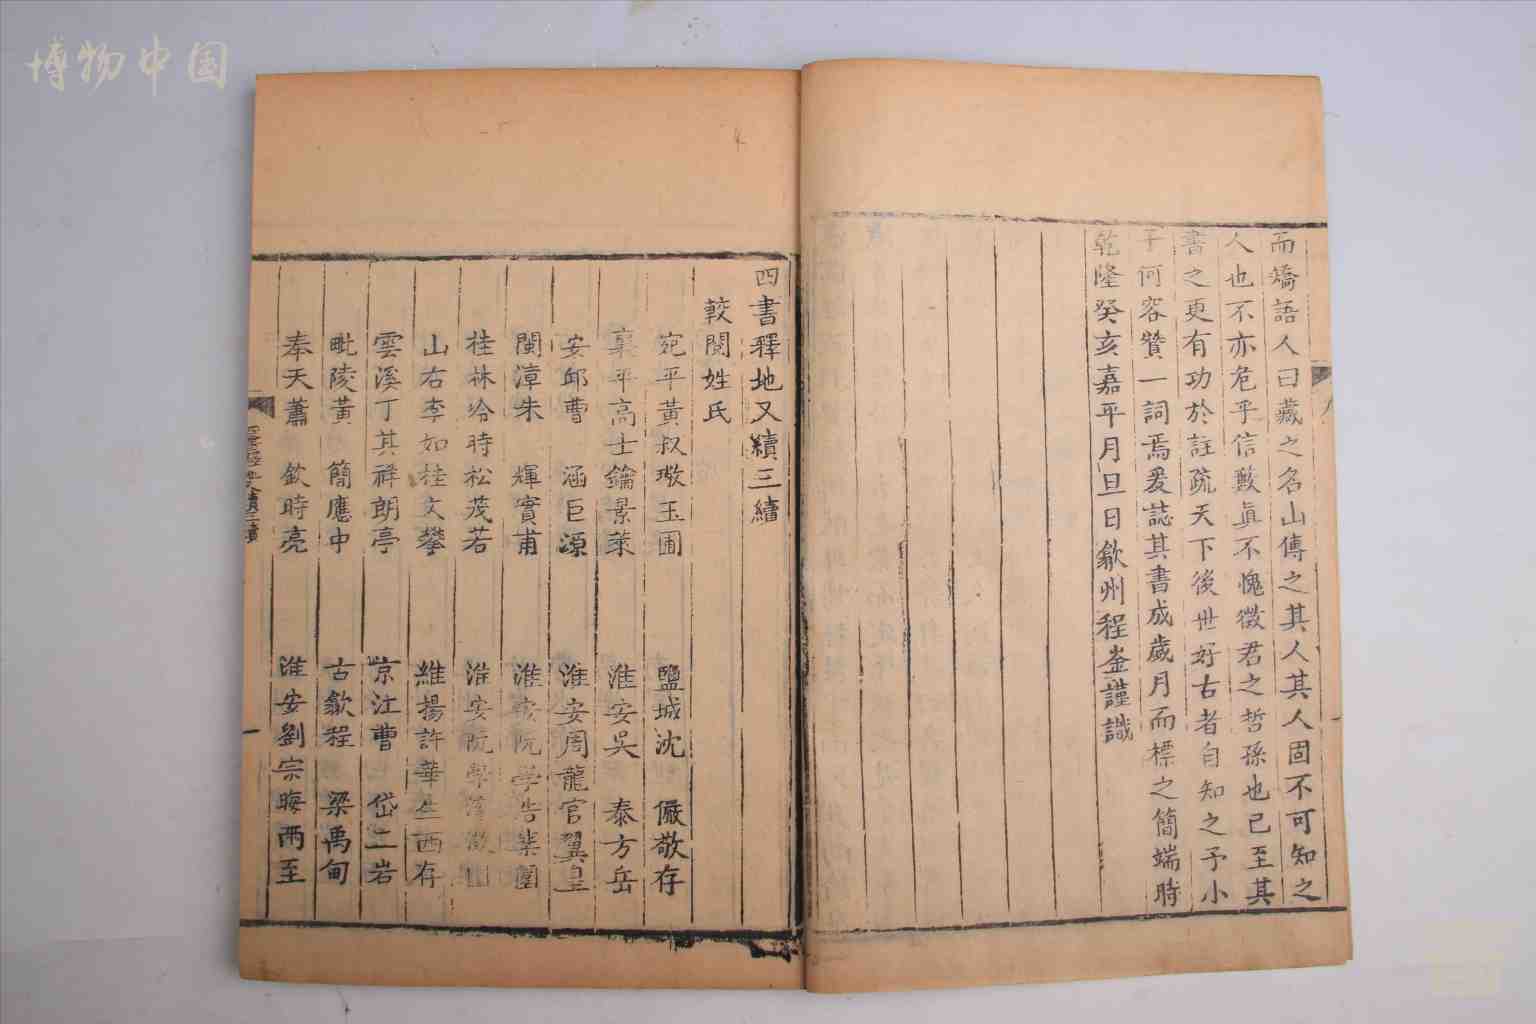 博物中国
而矯語人曰藏之名山傳之其人其人固不可知之
人也不亦危乎信斁眞不愧徵君之哲孫也已至其
書之更有功於註疏天下後世好古者自知之予小
子何容贊一詞焉爰誌其書成歲月而標之簡端時
乾隆癸亥嘉平月旦日歙州程崟謹識
四書釋地又續三續
較閱姓氏
宛平黃叔璥玉圃 鹽城沈儼敬存
襄平高士鑰景萊 淮安吳泰方岳
安邱曹涵巨源 淮安周龍官翼皇
閩漳朱輝實甫 淮安阮學浩裴園
桂林冷時松茂若 淮安阮學濬澂園
山右李如桂文攀 維揚許華生西存
雲溪丁其祥朗亭 京江曹岱二岩
毗陵黃簡應中 古歙程梁禹甸
奉天蕭欽時亮 淮安劉宗晦兩至